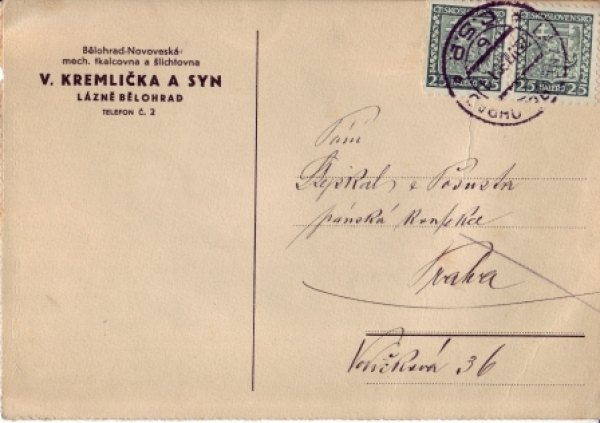 Bělohrad-Novoveská
mech. tkalcovna a šlichtovna
V. KREMLIČKA A SYN
LÁZNĚ BĚLOHRAD
TELEFON Č. 2
ČESKOSLOVENSKO
25 HALÉŘŮ 25
ČESKOSLOVENSKO
25 HALÉŘŮ 25
Pám
Štýskal & Podusta
pánská konfekce
Praha
Vodičková 36